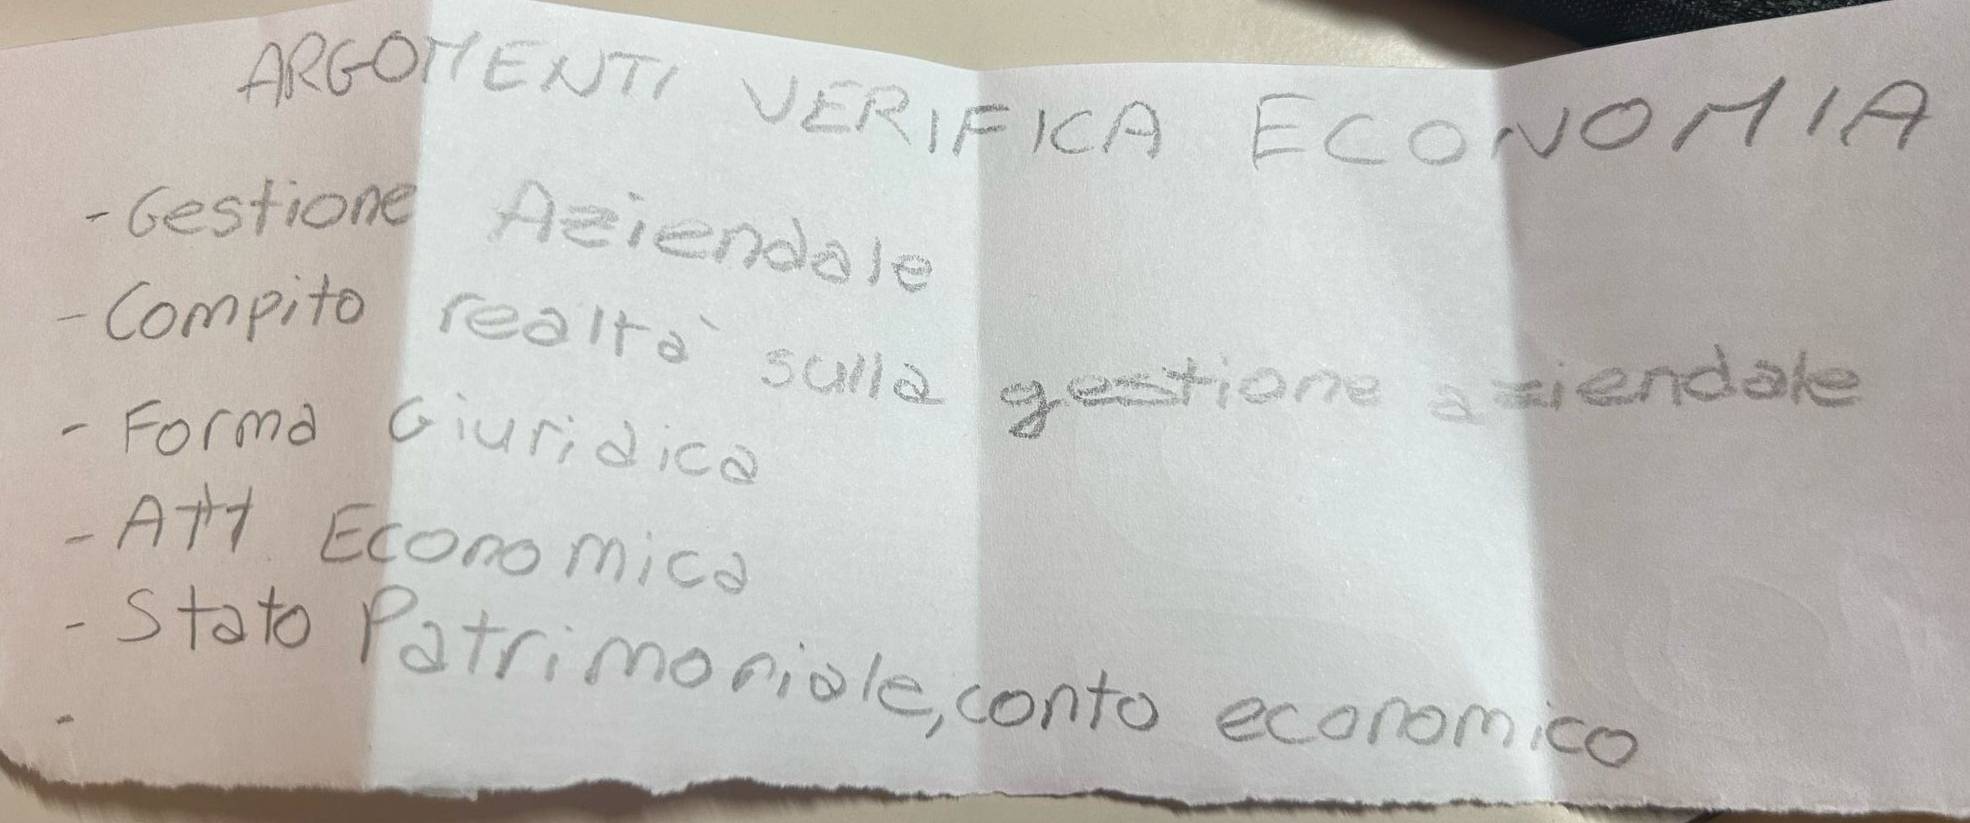 ARGOMENTI VERIFICA ECONOMIA
- Gestione Aziendale
- Compito realtà sulla gestione aziendale
- Forma Giuridica
- Att Economica
- Stato Patrimoniale, conto economico
-